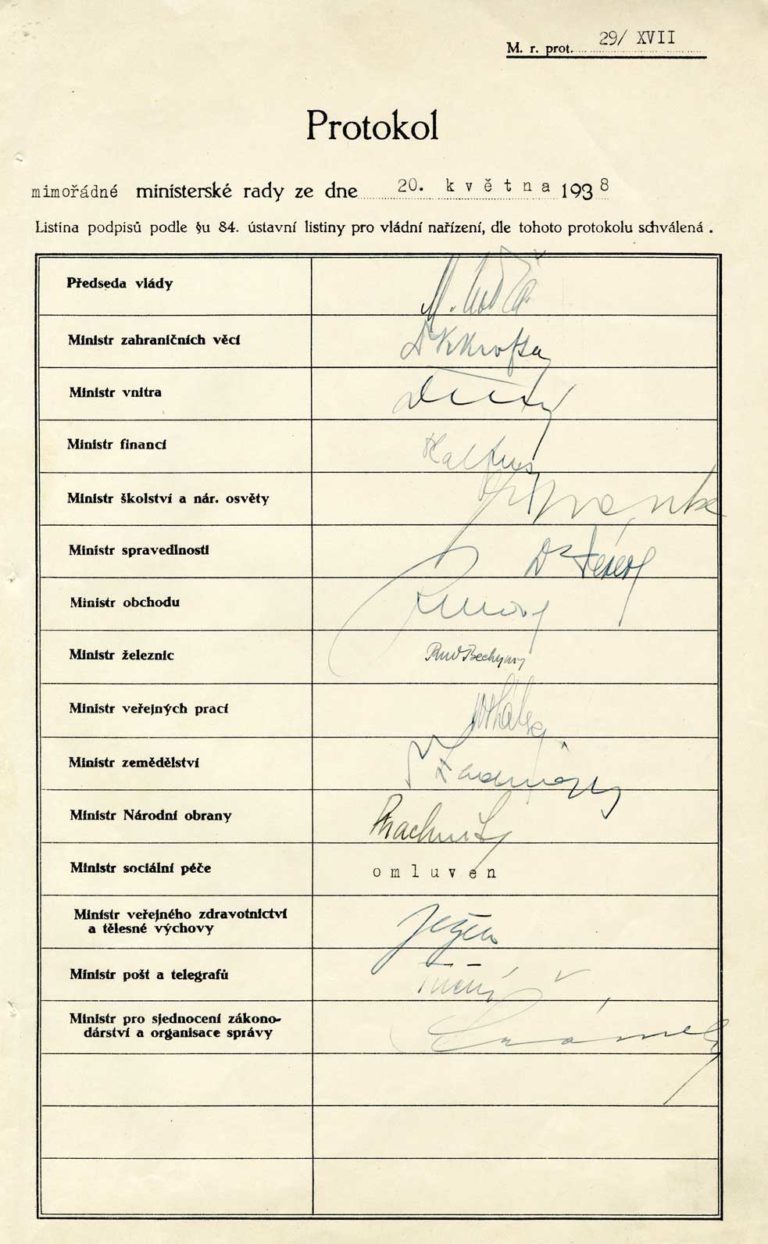 M. r. prot. 29/ XVII
Protokol
mimořádné ministerské rady ze dne 20. května 1938
Listina podpisů podle §u 84. ústavní listiny pro vládní nařízení, dle tohoto protokolu schválená .
Předseda vlády
Ministr zahraničních věcí Dr KKrofta
Ministr vnitra
Ministr financí Kalfus
Ministr školství a nár. osvěty
Ministr spravedlnosti Dr Dérer
Ministr obchodu
Ministr železnic Rud Bechyně
Ministr veřejných prací
Ministr zemědělství
Ministr Národní obrany Machník
Ministr sociální péče omluven
Ministr veřejného zdravotnictví
a tělesné výchovy Ježek
Ministr pošt a telegrafů Tučný
Ministr pro sjednocení zákono-
dárství a organisace správy Šrámek